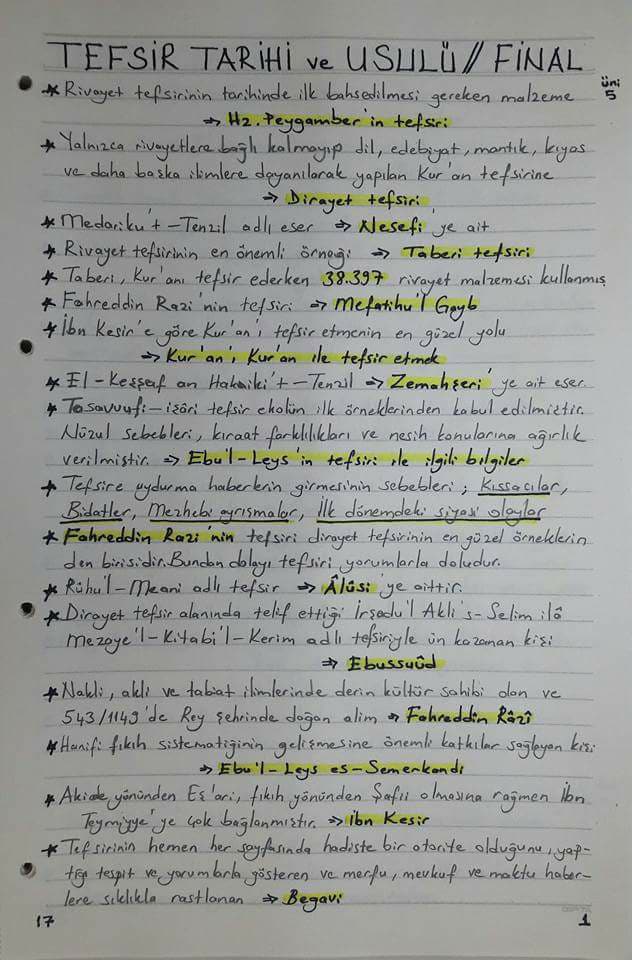 TEFSİR TARİHİ ve USULÜ // FİNAL
üni 5
* Rivayet tefsirinin tarihinde ilk bahsedilmesi gereken malzeme
⇒ Hz. Peygamber'in tefsiri
* Yalnızca rivayetlere bağlı kalmayıp dil, edebiyat, mantık, kıyas
ve daha başka ilimlere dayanılarak yapılan Kur'an tefsirine
⇒ Dirayet tefsiri
* Medariku't-Tenzil adlı eser ⇒ Nesefi'ye ait
* Rivayet tefsirinin en önemli örneği ⇒ Taberi tefsiri
* Taberi, Kur'anı tefsir ederken 38.397 rivayet malzemesi kullanmış
* Fahreddin Razi'nin tefsiri ⇒ Mefatihu'l Gayb
* İbn Kesir'e göre Kur'an'ı tefsir etmenin en güzel yolu
⇒ Kur'an'ı Kur'an ile tefsir etmek
* El-Keşşaf an Hakaiki't-Tenzil ⇒ Zemahşeri'ye ait eser.
* Tasavvufi-işâri tefsir ekolün ilk örneklerinden kabul edilmiştir.
Nüzul sebebleri, kıraat farklılıkları ve nesih konularına ağırlık
verilmiştir. ⇒ Ebu'l-Leys'in tefsiri ile ilgili bilgiler
* Tefsire uydurma haberlerin girmesinin sebebleri; Kıssacılar,
Bidatler, Mezhebi ayrışmalar, İlk dönemdeki siyasi olaylar
* Fahreddin Razi'nin tefsiri dirayet tefsirinin en güzel örneklerin
den birisidir. Bundan dolayı tefsiri yorumlarla doludur.
* Rûhu'l-Meani adlı tefsir ⇒ Âlûsi'ye aittir.
* Dirayet tefsir alanında telif ettiği İrşadu'l Akli's-Selim ilâ
Mezaye'l-Kitabi'l-Kerim adlı tefsiriyle ün kazanan kişi
⇒ Ebussuûd
* Nakli, akli ve tabiat ilimlerinde derin kültür sahibi olan ve
543/1149'de Rey şehrinde doğan alim ⇒ Fahreddin Râzî
* Hanifi fıkıh sistematiğinin gelişmesine önemli katkılar sağlayan kişi
⇒ Ebu'l-Leys es-Semerkandi
* Akide yönünden Eş'ari, fıkıh yönünden Şafii olmasına rağmen İbn
Teymiyye'ye çok bağlanmıştır. ⇒ İbn Kesir
* Tefsirinin hemen her sayfasında hadiste bir otorite olduğunu, yap-
tığı tespit ve yorumlarla gösteren ve merfu, mevkuf ve maktu haber-
lere sıklıkla rastlanan ⇒ Begavi
17
1